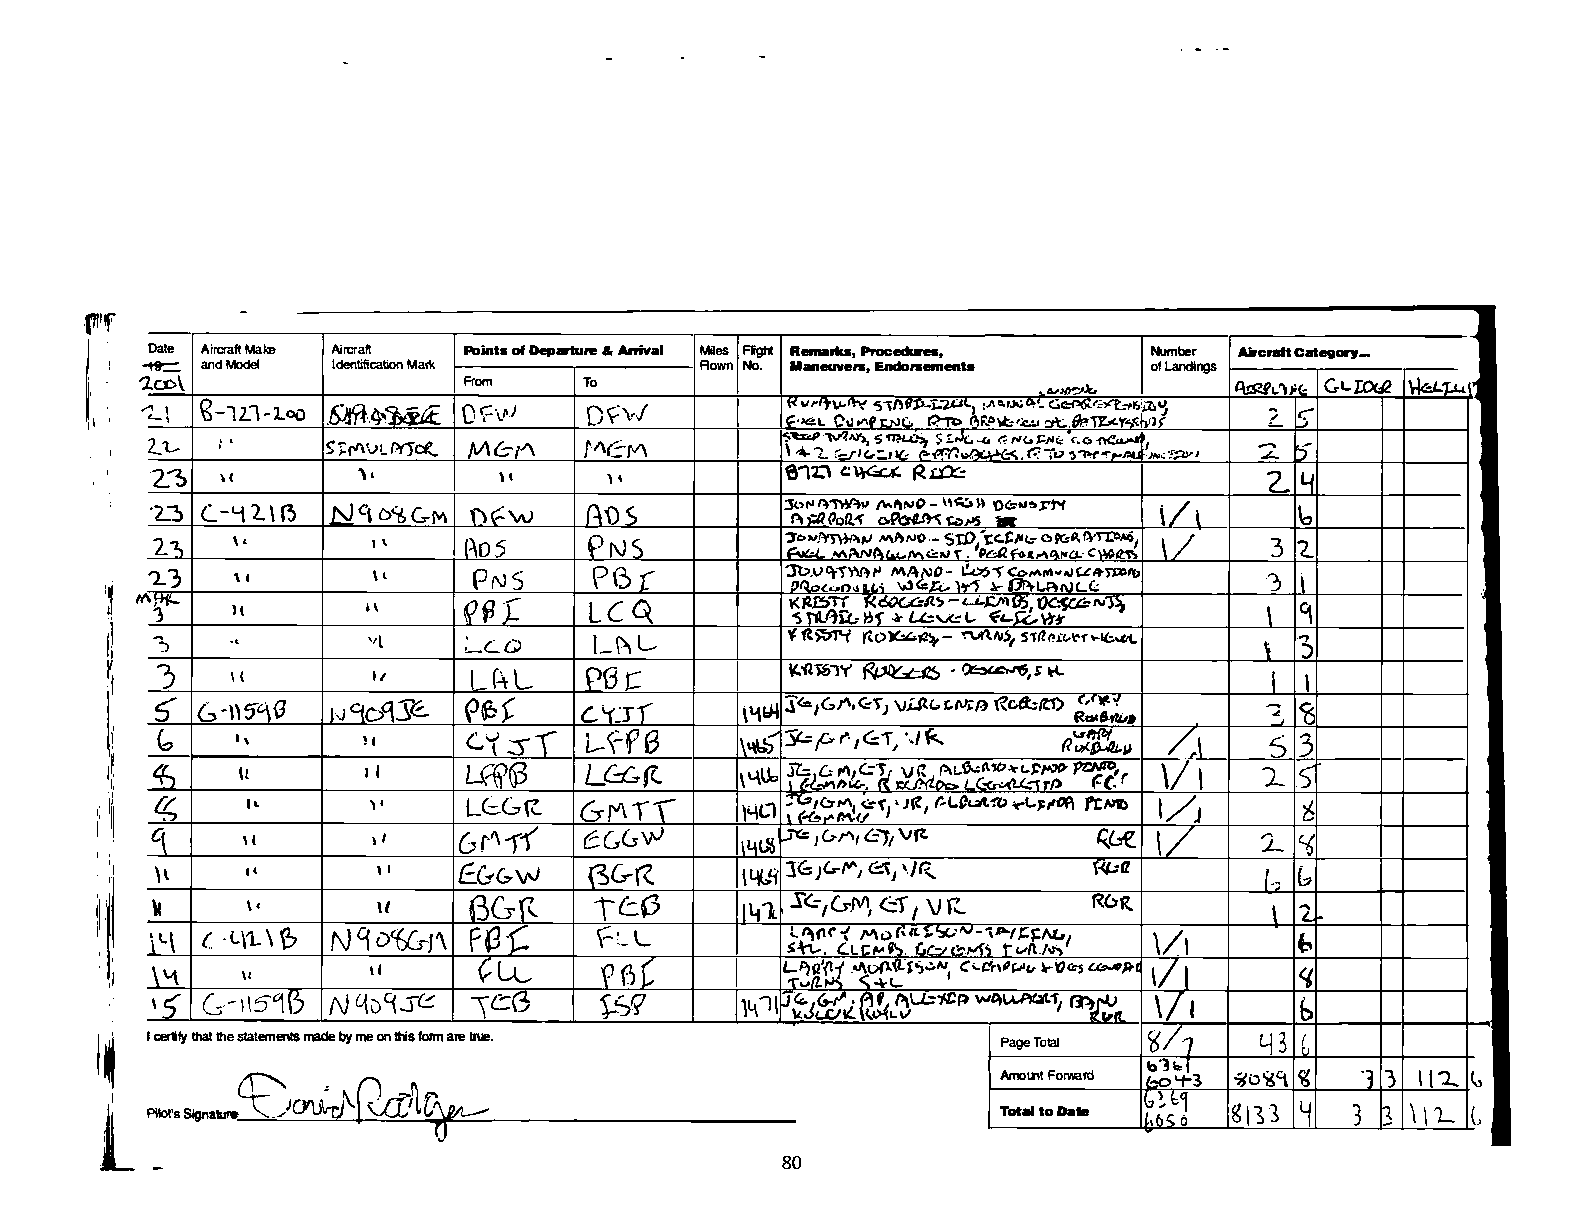 Date Aircraft Make Aircraft Points of Departure & Arrival Miles Flight Remarks, Procedures, Number Aircraft Category—
19 and Model Identification Mark Flown No. Maneuvers, Endorsements of Landings
2001 From To AIRPLANE GLIDER
21 B-727-200 DFW DFW RUNAWAY STABILIZER, MANUAL GEAR EXTENSION, 2 5
FUEL DUMPING, RTO
22 " SIMULATOR MGM MGM STEEP TURNS, STALLS, SINGLE ENGINE GO AROUND, 2 5
1 & 2 ENGINE APPROACHES,
23 " " " " B727 CHECK RIDE 2 4
23 C-421B N908GM DFW ADS JONATHAN MANO - HIGH DENSITY 1/1 6
AIRPORT OPERATIONS
23 " " ADS PNS JONATHAN MANO - SID, ICING OPERATIONS, 1/ 3 2
FUEL MANAGEMENT, PERFORMANCE CHARTS
23 " " PNS PBI JONATHAN MANO - LOST COMMUNICATIONS 3 1
PROCEDURES WEIGHT & BALANCE
MAR
3 " " PBI LCQ KRISTY RODGERS - CLIMBS, DESCENTS, 1 9
STRAIGHT & LEVEL FLIGHT
3 " " LCQ LAL KRISTY RODGERS - TURNS, STRAIGHT + LEVEL 1 3
3 " " LAL PBI KRISTY RODGERS - DESCENTS, S+L 1 1
5 G-1159B N909JE PBI CYJT 1464 JE, GM, ET, VIRGINIA ROBERTS GARY 3 8
ROXBURGH
6 " " CYJT LFPB 1465 JE, GM, ET, VR GARY ROXBURGH /1 5 3
8 " " LFPB LEGR 1466 JE, GM, ET, VR, ALBERTO + LINDA PINTO, 1/1 2 5
1 FEMALE, RICARDO
8 " " LEGR GMTT 1467 JE, GM, ET, VR, ALBERTO + LINDA PINTO 1/1 8
1 FEMALE
9 " " GMTT EGGW 1468 JE, GM, ET, VR RGR 1/ 2 8
11 " " EGGW BGR 1469 JE, GM, ET, VR RGR 6 6
11 " " BGR TEB JE, GM, ET, VR RGR 1 2
14 C-421B N908GM PBI FLL LARRY MORRISON - TAXIING, 1/1 6
S+L, CLIMBS, DESCENTS TURNS
14 " " FLL PBI LARRY MORRISON, CLIMBING + DESCENDING 1/1 8
TURNS S+L
15 G-1159B N909JE TEB ISP 1471 JE, GM, AP, 1/1 6
I certify that the statements made by me on this form are true. Page Total 8/7 43 6
Amount Forward 6361 6043 8089 8 3 3 112 6
Pilot's Signature Total to Date 6369 6050 8133 4 3 3 112 6
80